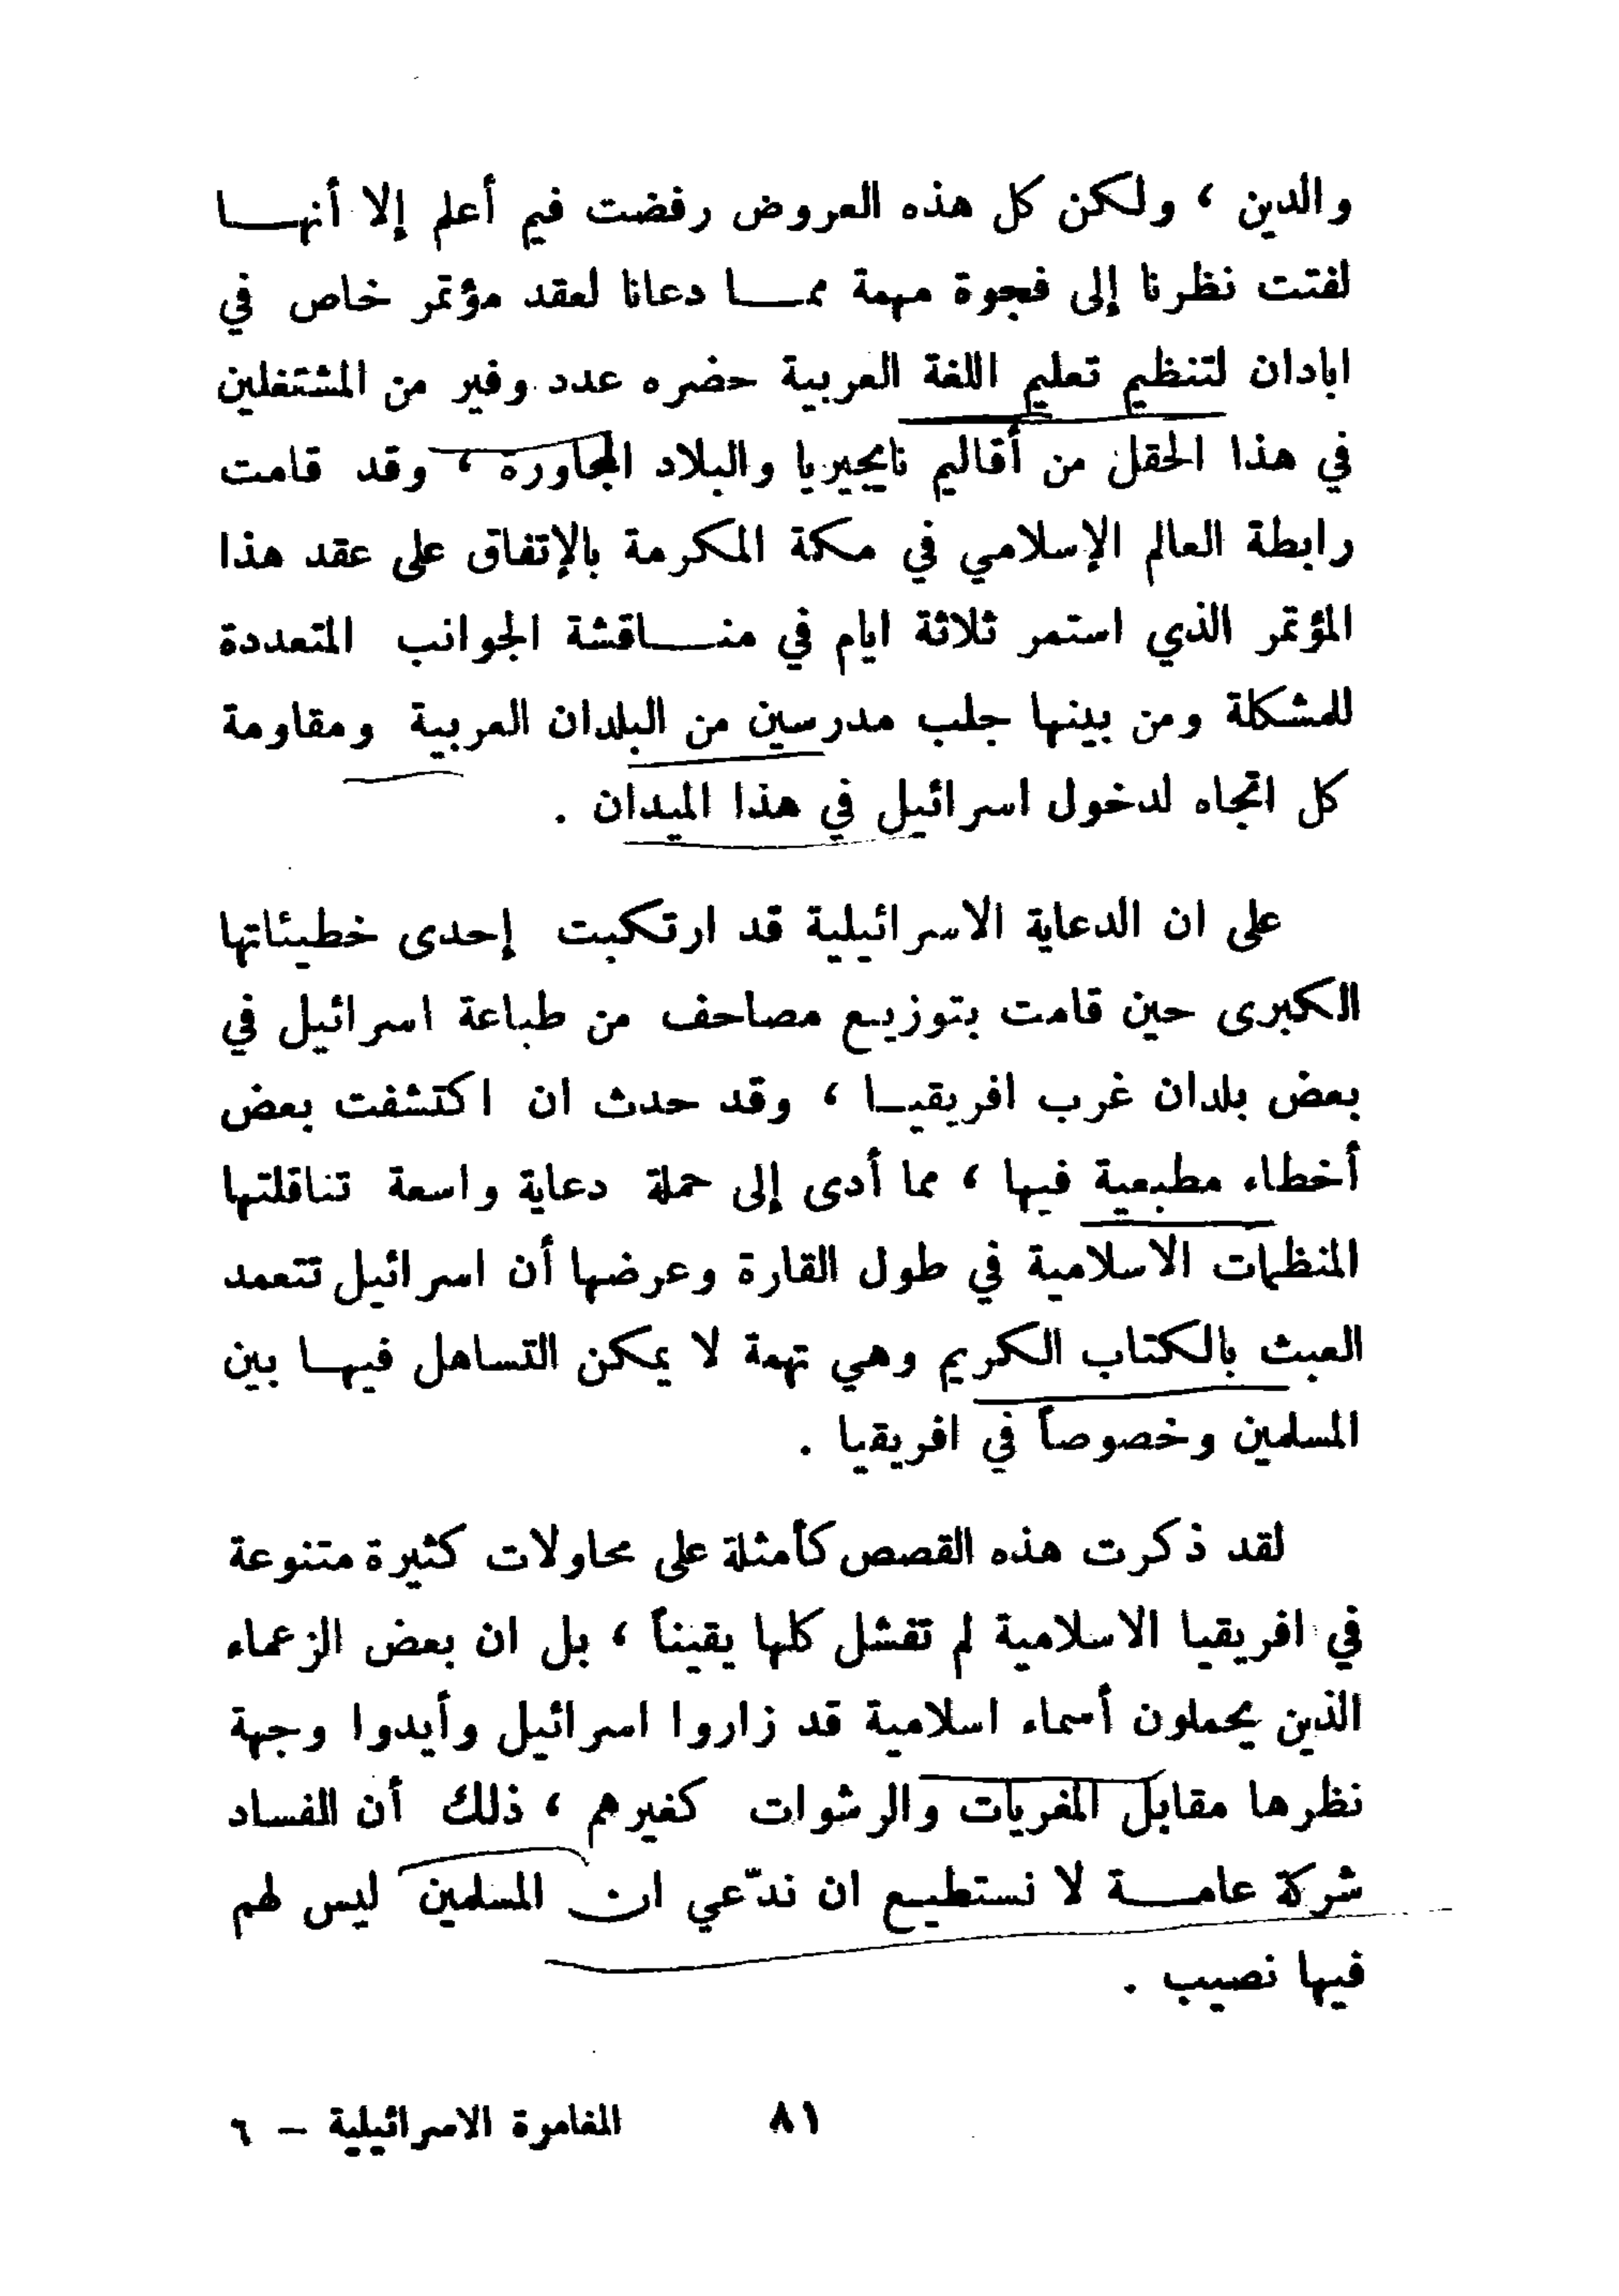 والدين ، ولكن كل هذه العروض رفضت فيم أعلم إلا أنهـــا
لفتت نظرنا إلى فجوة مهمة ممـــا دعانا لعقد مؤتمر خاص في
ابادان لتنظيم تعليم اللغة العربية حضره عدد وفير من المشتغلين
في هذا الحقل من أقاليم نايجيريا والبلاد المجاورة ، وقد قامت
رابطة العالم الإسلامي في مكة المكرمة بالإتفاق على عقد هذا
المؤتمر الذي استمر ثلاثة ايام في منـــاقشة الجوانب المتعددة
للمشكلة ومن بينها جلب مدرسين من البلدان العربية ومقاومة
كل اتجاه لدخول اسرائيل في هذا الميدان .
على ان الدعاية الاسرائيلية قد ارتكبت إحدى خطيئاتها
الكبرى حين قامت بتوزيـع مصاحف من طباعة اسرائيل في
بعض بلدان غرب افريقيـا ، وقد حدث ان اكتشفت بعض
أخطاء مطبعية فيها ، مما أدى إلى حملة دعاية واسعة تناقلتها
المنظمات الاسلامية في طول القارة وعرضها أن اسرائيل تتعمد
العبث بالكتاب الكريم وهي تهمة لا يمكن التساهل فيهـا بين
المسلمين وخصوصاً في افريقيا .
لقد ذكرت هذه القصص كأمثلة على محاولات كثيرة متنوعة
في افريقيا الاسلامية لم تفشل كلها يقيناً ، بل ان بعض الزعماء
الذين يحملون أسماء اسلامية قد زاروا اسرائيل وأيدوا وجهة
نظرها مقابل المغريات والرشوات كغيرهم ، ذلك أن الفساد
شركة عامـــة لا نستطيـع ان ندّعي ان المسلمين ليس لهم
فيها نصيب .
٨١ المغامرة الاسرائيلية – ٦